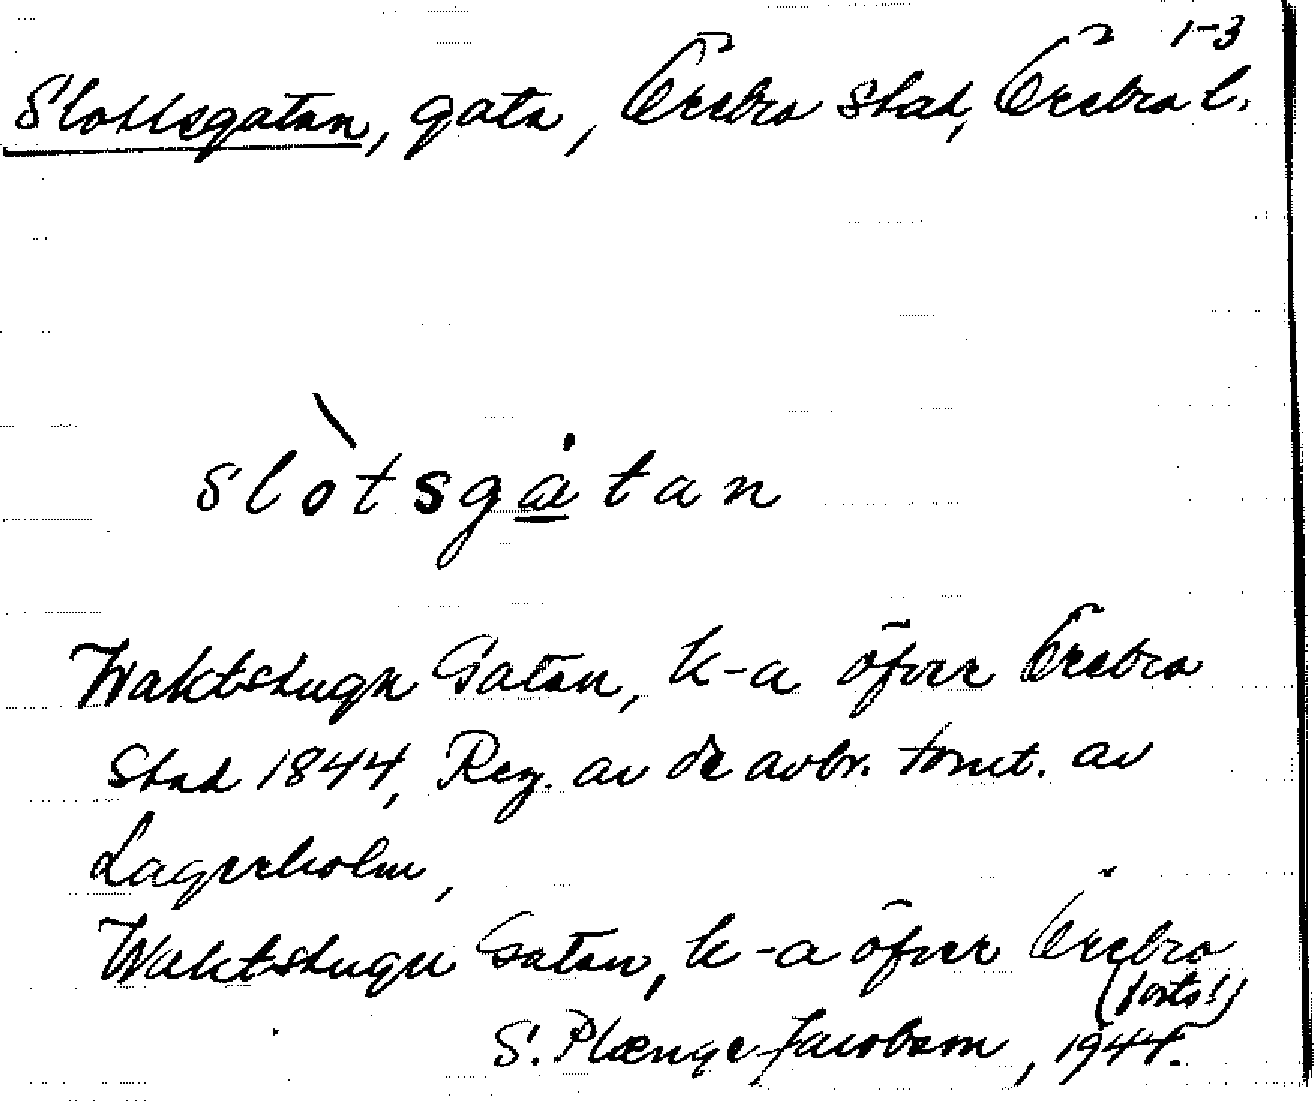 1-3
Slottsgatan, gata, Örebro stad, Örebro l.
slòtsgàtan
Waktstugu Gatan, k-a öfver Örebro
Stad 1844, Reg. av de avbr. tomt. av
Lagerholm,
Waktstugu Gatan, k-a öfver Örebro
(forts!)
S. Plænge Jacobson, 1944.